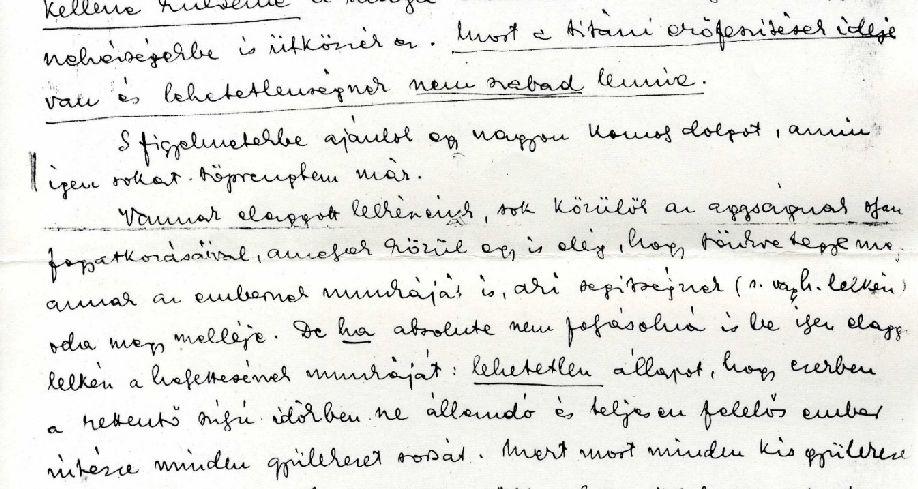 kellene
nehézségekbe is ütközik ez. Most a titáni erőfeszítések ideje
van és lehetetlenségnek nem szabad lennie.
S figyelmetekbe ajánlok egy nagyon komoly dolgot, amin
igen sokat töprengtem már.
Vannak elaggott lelkészeink, sok közülök az aggságnak olyan
fogyatkozásaival, amelyek közül egy is elég, hogy tönkre tegye
annak az embernek munkáját is, aki segítségnek (s. vagy h. lelkész)
oda megy melléje. De ha absolute nem befolyásolná is be ilyen elagg.
lelkész a helyettesének munkáját: lehetetlen állapot, hogy ezekben
a rettentő súlyú időkben ne állandó és teljesen felelős ember
intézze minden gyülekezet sorsát. Mert most minden kis gyülekeze